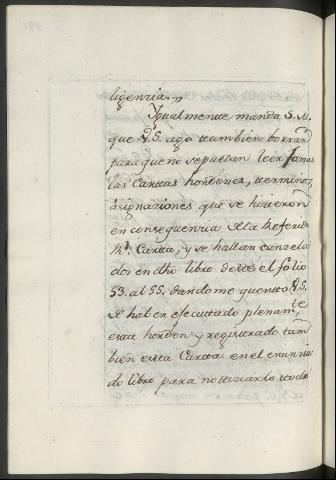 ligencia."
Ygualmente manda S. M.
que V.S. aga tambien borrar
para que no se puedan leer jamas
las Cartas hordenes, termino,
asignaciones que se hicieron
en conseguencia de la Referida
Rl. Carta, y se hallan canzela
dos en dho libro desde el folio
53. al 55. dandome quenta V.S.
de haber ejecutado plenamte
esta horden y registrado tam
bien esta Carta en el enuncia
do libro para noticiarlo todo